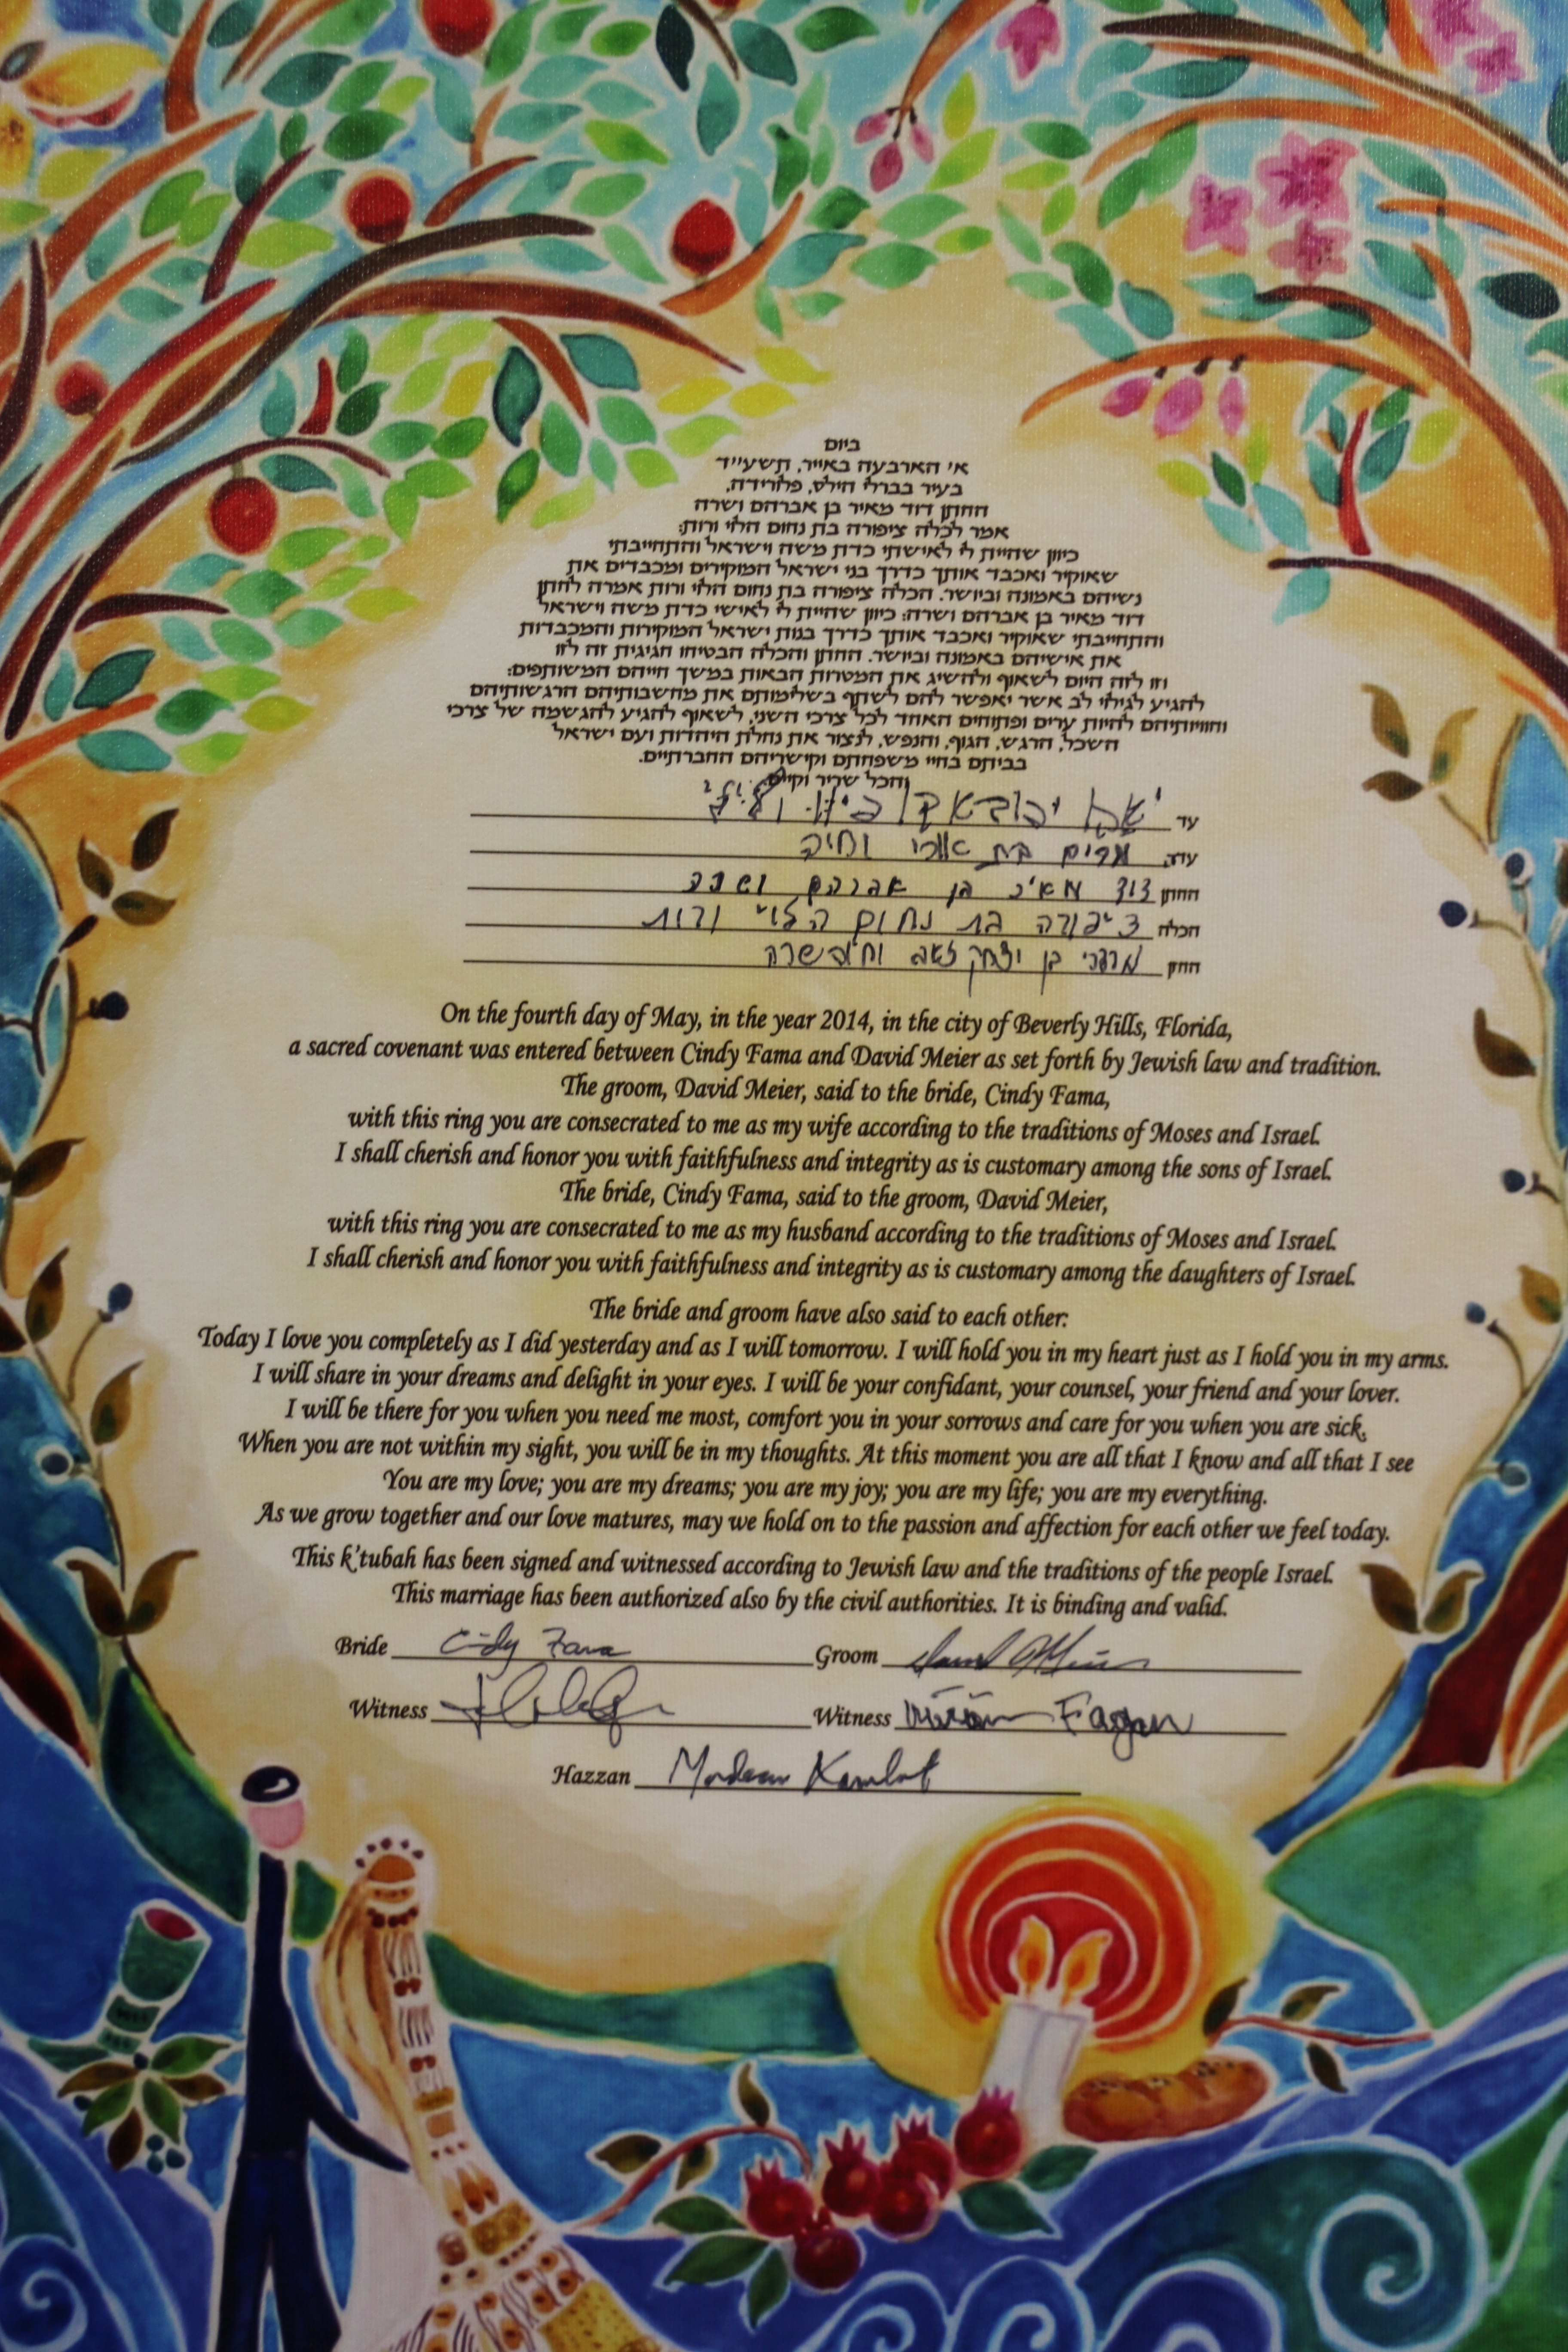 ביום
א' הארבעה באייר, תשע"ד
בעיר בברלי הילס, פלורידה,
החתן דוד מאיר בן אברהם ושרה
אמר לכלה ציפורה בת נחום הלוי ורות:
כיוון שהיית לי לאישתי כדת משה וישראל והתחייבתי
שאוקיר ואכבד אותך כדרך בני ישראל המוקירים ומכבדים את
נשיהם באמונה וביושר. הכלה ציפורה בת נחום הלוי ורות אמרה לחתן
דוד מאיר בן אברהם ושרה: כיוון שהיית לי לאישי כדת משה וישראל
והתחייבתי שאוקיר ואכבד אותך כדרך בנות ישראל המוקירות והמכבדות
את אישיהם באמונה וביושר. החתן והכלה הבטיחו חגיגית זה לזו
וזו לזה היום לשאוף ולהשיג את המטרות הבאות במשך חייהם המשותפים:
להגיע לגילוי לב אשר יאפשר להם לשתף בשלימותם את מחשבותיהם הרגשותיהם
וחוויותיהם להיות ערים ופתוחים האחד לכל צרכי השני, לשאוף להגיע להגשמה של צרכי
השכל, הרגש, הגוף, והנפש, לנצור את נחלת היהדות ועם ישראל
בביתם בחיי משפחתם וקישריהם החברתיים.
והכל שריר וקיים
עד
עדה מרים בת
החתן דוד מאיר בן אברהם ושרה
הכלה ציפורה בת נחום הלוי ורות
חזן מרדכי בן יצחק זאב
On the fourth day of May, in the year 2014, in the city of Beverly Hills, Florida,
a sacred covenant was entered between Cindy Fama and David Meier as set forth by Jewish law and tradition.
The groom, David Meier, said to the bride, Cindy Fama,
with this ring you are consecrated to me as my wife according to the traditions of Moses and Israel.
I shall cherish and honor you with faithfulness and integrity as is customary among the sons of Israel.
The bride, Cindy Fama, said to the groom, David Meier,
with this ring you are consecrated to me as my husband according to the traditions of Moses and Israel.
I shall cherish and honor you with faithfulness and integrity as is customary among the daughters of Israel.
The bride and groom have also said to each other:
Today I love you completely as I did yesterday and as I will tomorrow. I will hold you in my heart just as I hold you in my arms.
I will share in your dreams and delight in your eyes. I will be your confidant, your counsel, your friend and your lover.
I will be there for you when you need me most, comfort you in your sorrows and care for you when you are sick.
When you are not within my sight, you will be in my thoughts. At this moment you are all that I know and all that I see
You are my love; you are my dreams; you are my joy; you are my life; you are my everything.
As we grow together and our love matures, may we hold on to the passion and affection for each other we feel today.
This k'tubah has been signed and witnessed according to Jewish law and the traditions of the people Israel.
This marriage has been authorized also by the civil authorities. It is binding and valid.
Bride Cindy Fama Groom David Meier
Witness Witness Fagan
Hazzan